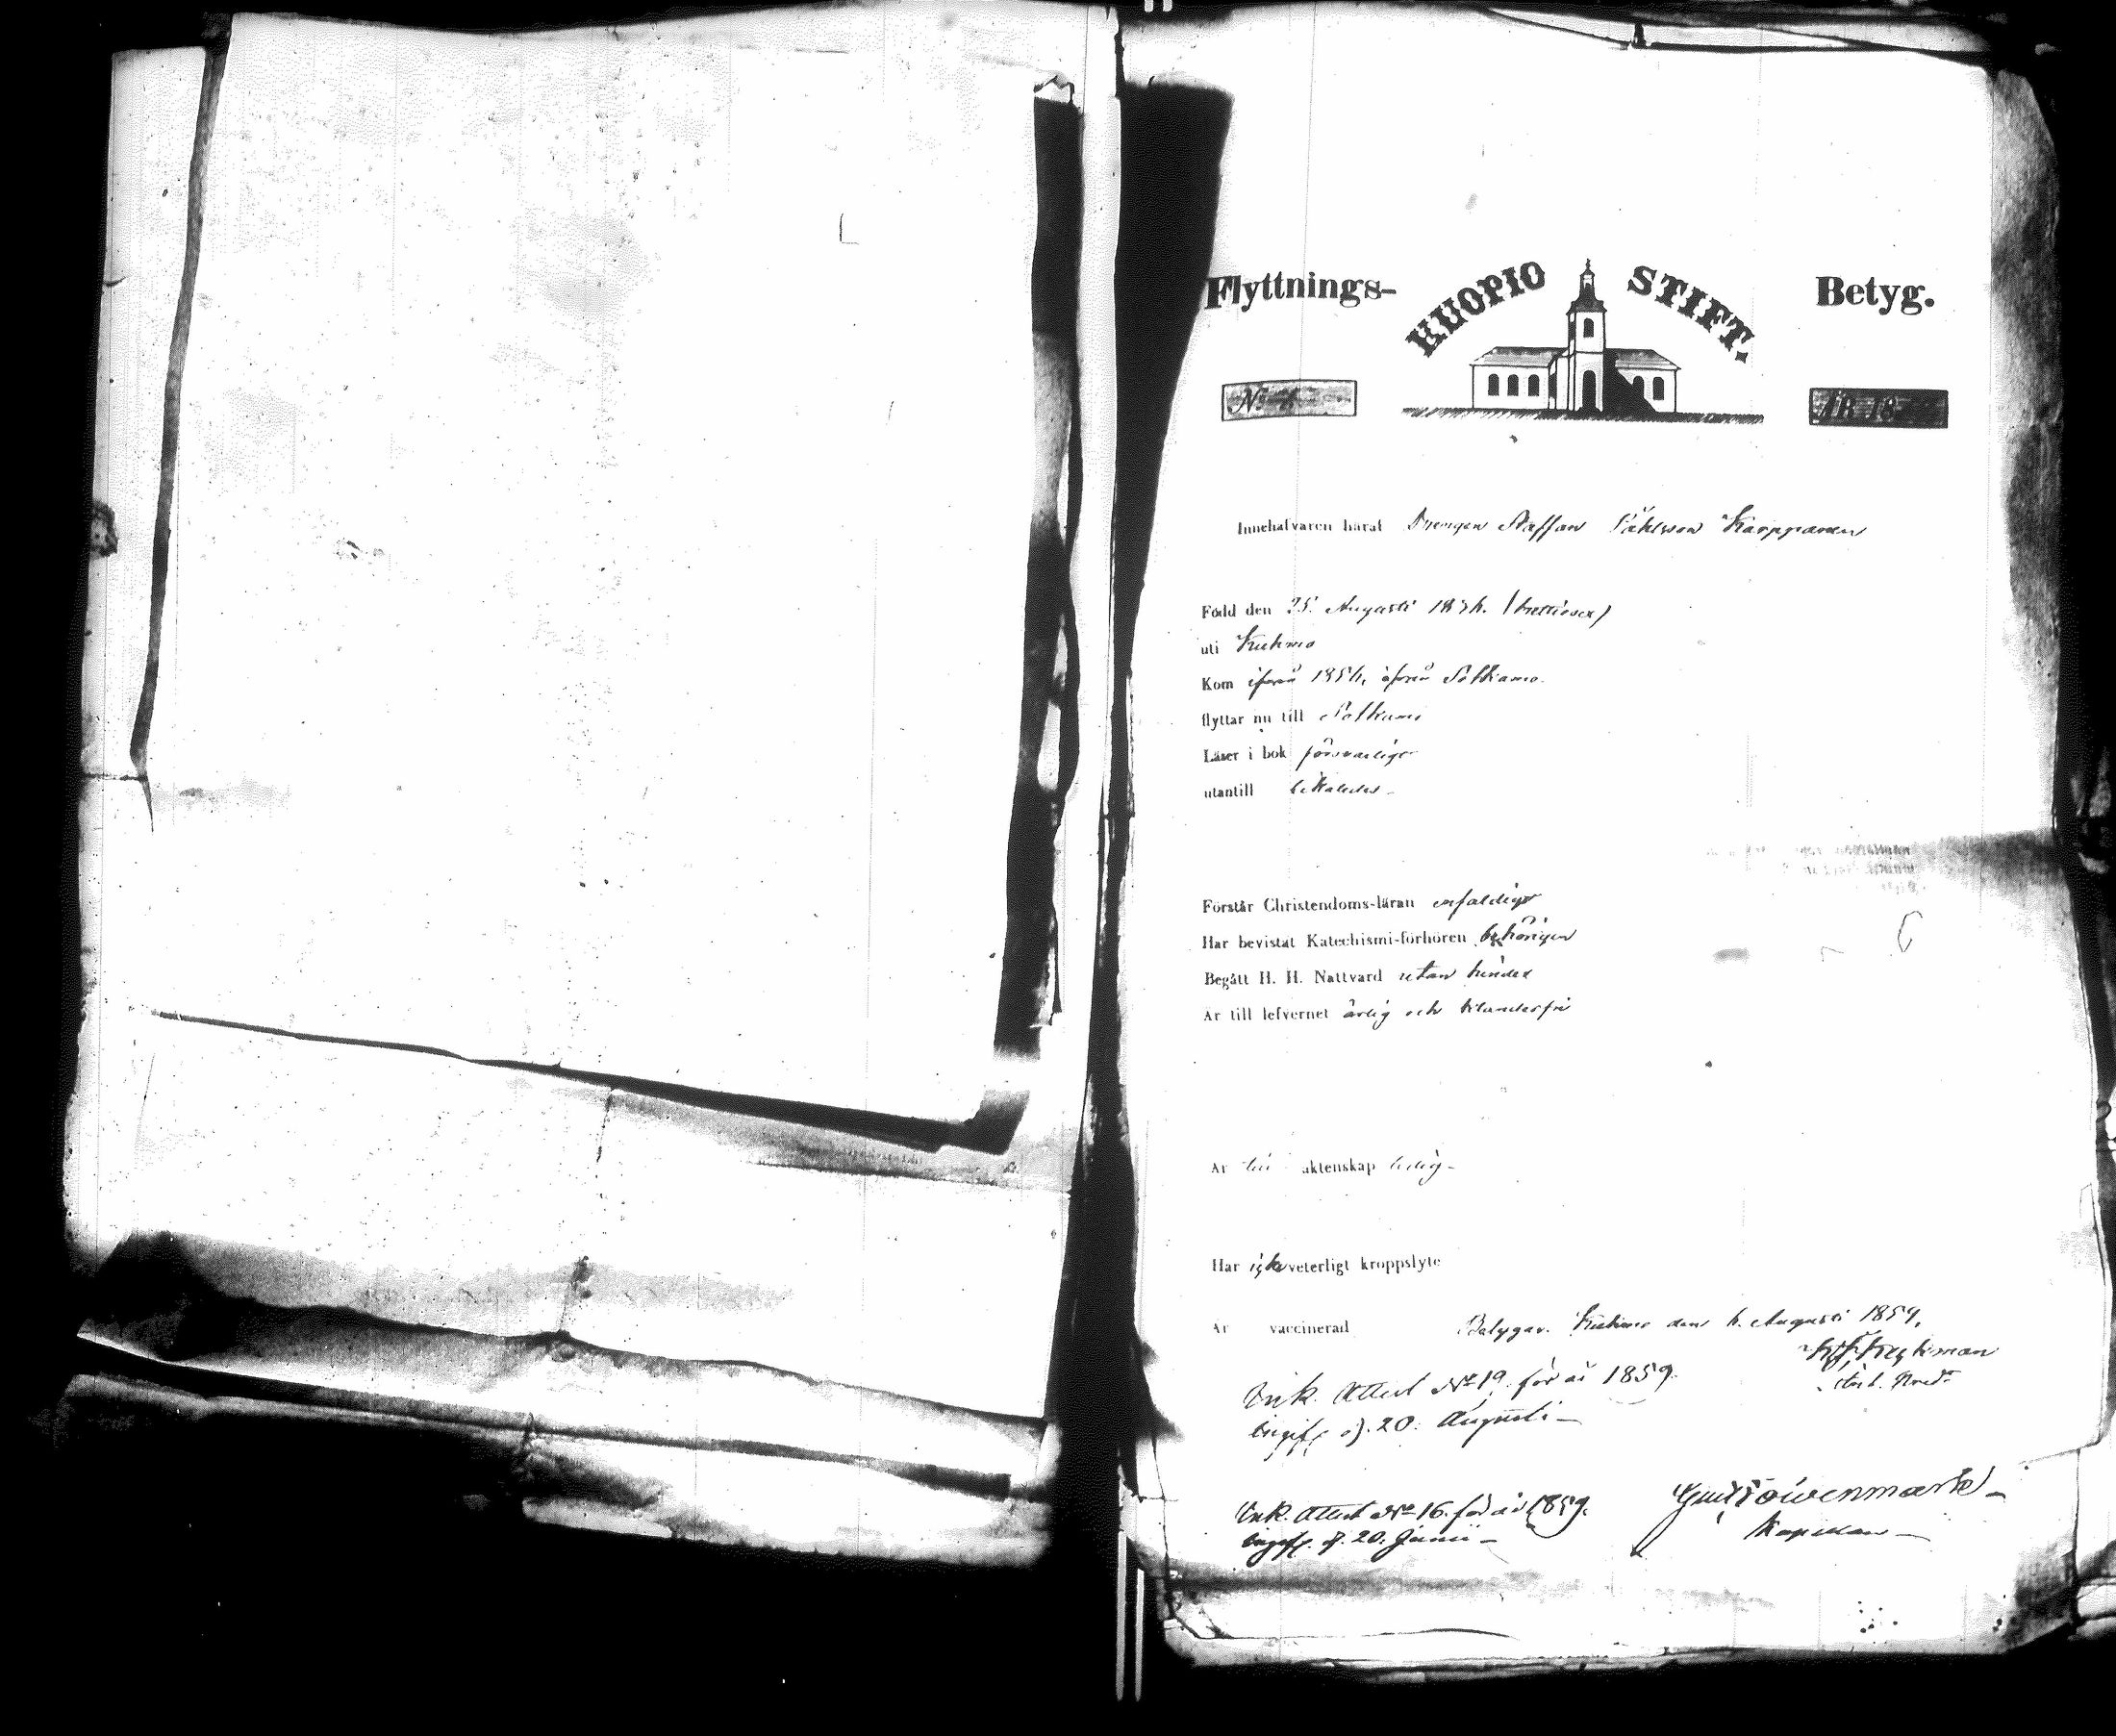 Flyttnings- KUOPIO STIFT. Betyg.
N:o ÅR 18
Innehafvaren häraf Drengen Staffan Påhlsson Karppanen
Född den 25 Augusti 1836. (trettiosex)
uti Kuhmo
Kom ifrån 1856, ifrån Sotkamo.
flyttar nu till Sotkamo
Läser i bok försvarligt
utantill
Förstår Christendoms-läran enfaldigt
Har bevistat Katechismi-förhören behörigen
Begått H. H. Nattvard utan hinder
Är till lefvernet ärlig och klanderfri
Är till äktenskap ledig-
Har icke veterligt kroppslyte
Är vaccinerad Betygar. Kuhmo den 6. Augusti 1859.
Ink. Attest No 19. för år 1859.
ingif. d. 20. Augusti-
Ink. Attest No 16. för år 1859.
ingif. d. 20. Junii-
Kapellan-